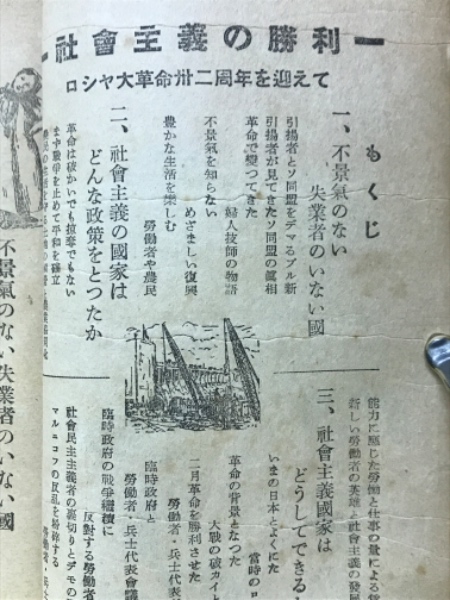 社會主義の勝利
ロシヤ大革命卅二周年を迎えて
もくじ
一、不景氣のない
失業者のいない國
引揚者とソ同盟をデマるブル新
引揚者が見てきたソ同盟の眞相
革命で變つてきた
婦人技師の物語
不景氣を知らない
めざましい復興
豊かな生活を樂しむ
勞働者や農民
二、社會主義の國家は
どんな政策をとつたか
革命は破かいでも掠奪でもない
まず戰爭を止めて平和を確立
能力に應じた勞働と仕事の量による
新しい勞働者の英雄と社會主義の發展
三、社會主義國家は
どうしてできる
いまの日本とよくにた
當時のロ
革命の背景となつた
大戰の破カイ
二月革命を勝利させた
勞働者・兵士代表
臨時政府と
勞働者・兵士代表會議
臨時政府の戰爭繼續に
反對する勞働者
社會民主主義者の裏切りとデモの
の反亂を粉碎する
勞働者・兵士
不景氣のない失業者のいない國